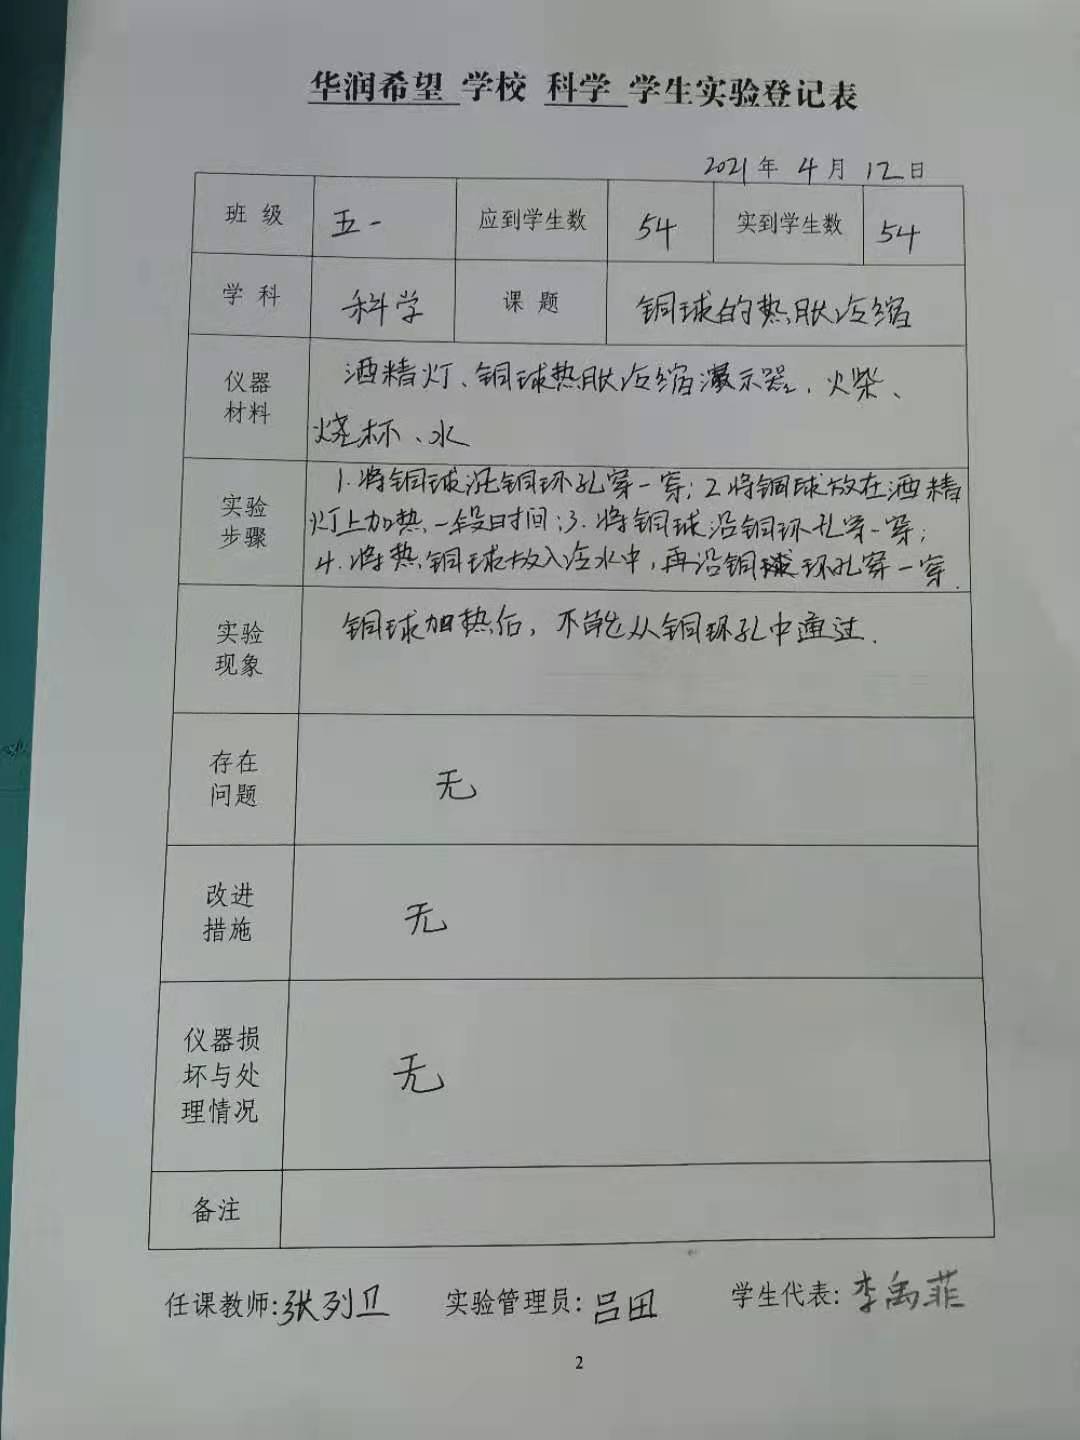 华润希望 学校 科学 学生实验登记表
2021年 4月 12日
班级 五一 应到学生数 54 实到学生数 54
学科 科学 课题 铜球的热肽冷缩
仪器材料 酒精灯、铜球热肽冷缩演示器、火柴、
烧杯、水
实验步骤 1.将铜球沿铜环孔穿一穿;2.将铜球放在酒精
灯上加热一段时间;3.将铜球沿铜环孔穿一穿;
4.将热铜球放入冷水中,再沿铜球环孔穿一穿.
实验现象 铜球加热后,不能从铜环孔中通过.
存在问题 无
改进措施 无
仪器损坏与处理情况 无
备注
任课教师:张列卫 实验管理员:吕田 学生代表:李禹菲
2